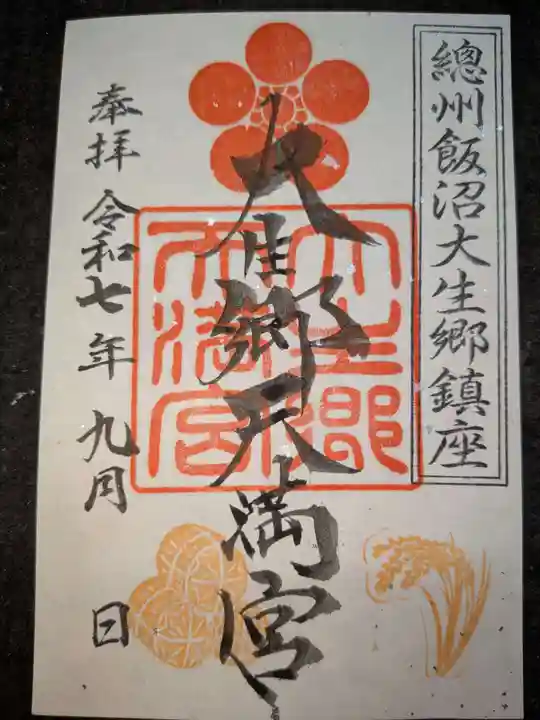 總州飯沼大生郷鎮座
大生郷天満宮
大生郷
天満宮
奉拝 令和七年 九月 日